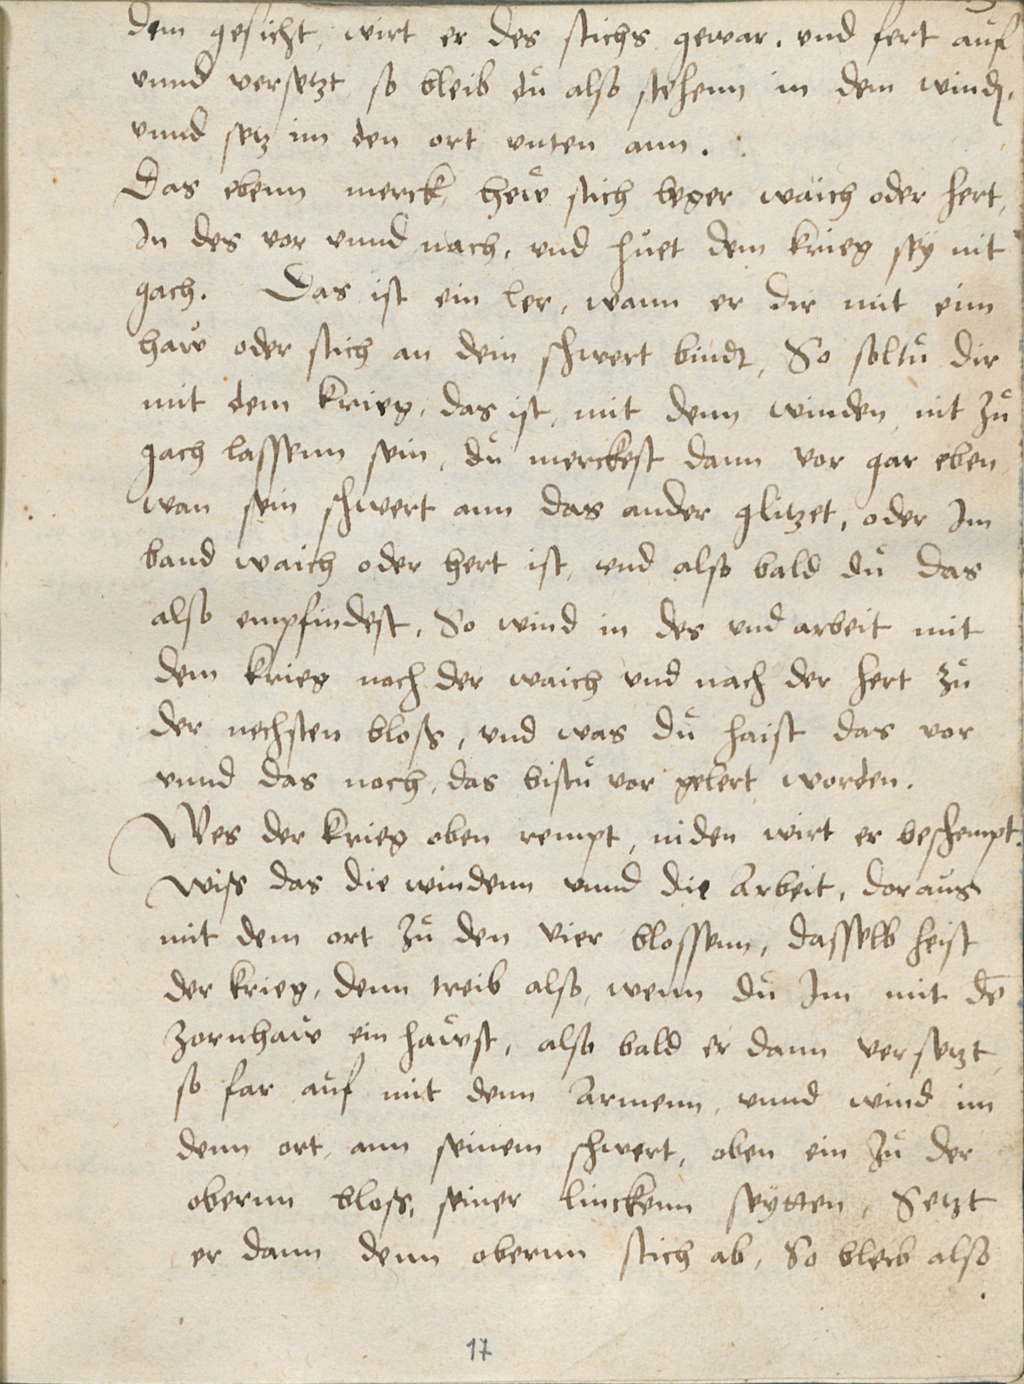 dem gesicht, wirt er des stichs gewar, vnd fert aůf
vnnd versetzt so bleib dů also stehenn in dem wind,
vnnd setz im den ort vnten ann.
Das ebenn merck, heẘ stich leger waich oder hert,
In des vor vnnd nach, vnd hůet dem krieg sey nit
gach. Das ist ein ler, wann er dir mit eim
haẘ oder stich an dein schwert bindt, So soltů dir
mit dem krieg, das ist, mit denn winden, nit zů
gach lassenn sein, dů merckest dann vor gar eben
wan sein schwert ann das ander glitzet, oder Im
band waich oder hert ist, vnd also bald dů das
also empfindest, So wind in des vnd arbeit mit
dem krieg noch der waich vnd nach der hert zů
der nechsten bloss, vnd was dů haist das vor
vnnd das noch, das bistů vor gelert worden.
Wes der krieg oben rempt, niden wirt er beschempt.
Wiss das die windenn vnnd die Arbeit, doraůs
mit dem ort zů den vier blossenn, dasselb heist
der krieg, denn treib also, wenn dů Im mit dē
zornhaẘ ein haẘst, also bald er dann versetzt,
so far aůf mit denn Armenn, vnnd wind im
denn ort, ann seinem schwert, oben ein zů der
obernn bloss, seiner linckenn seytten, Setzt
er dann denn obernn stich ab, So bleib also
17